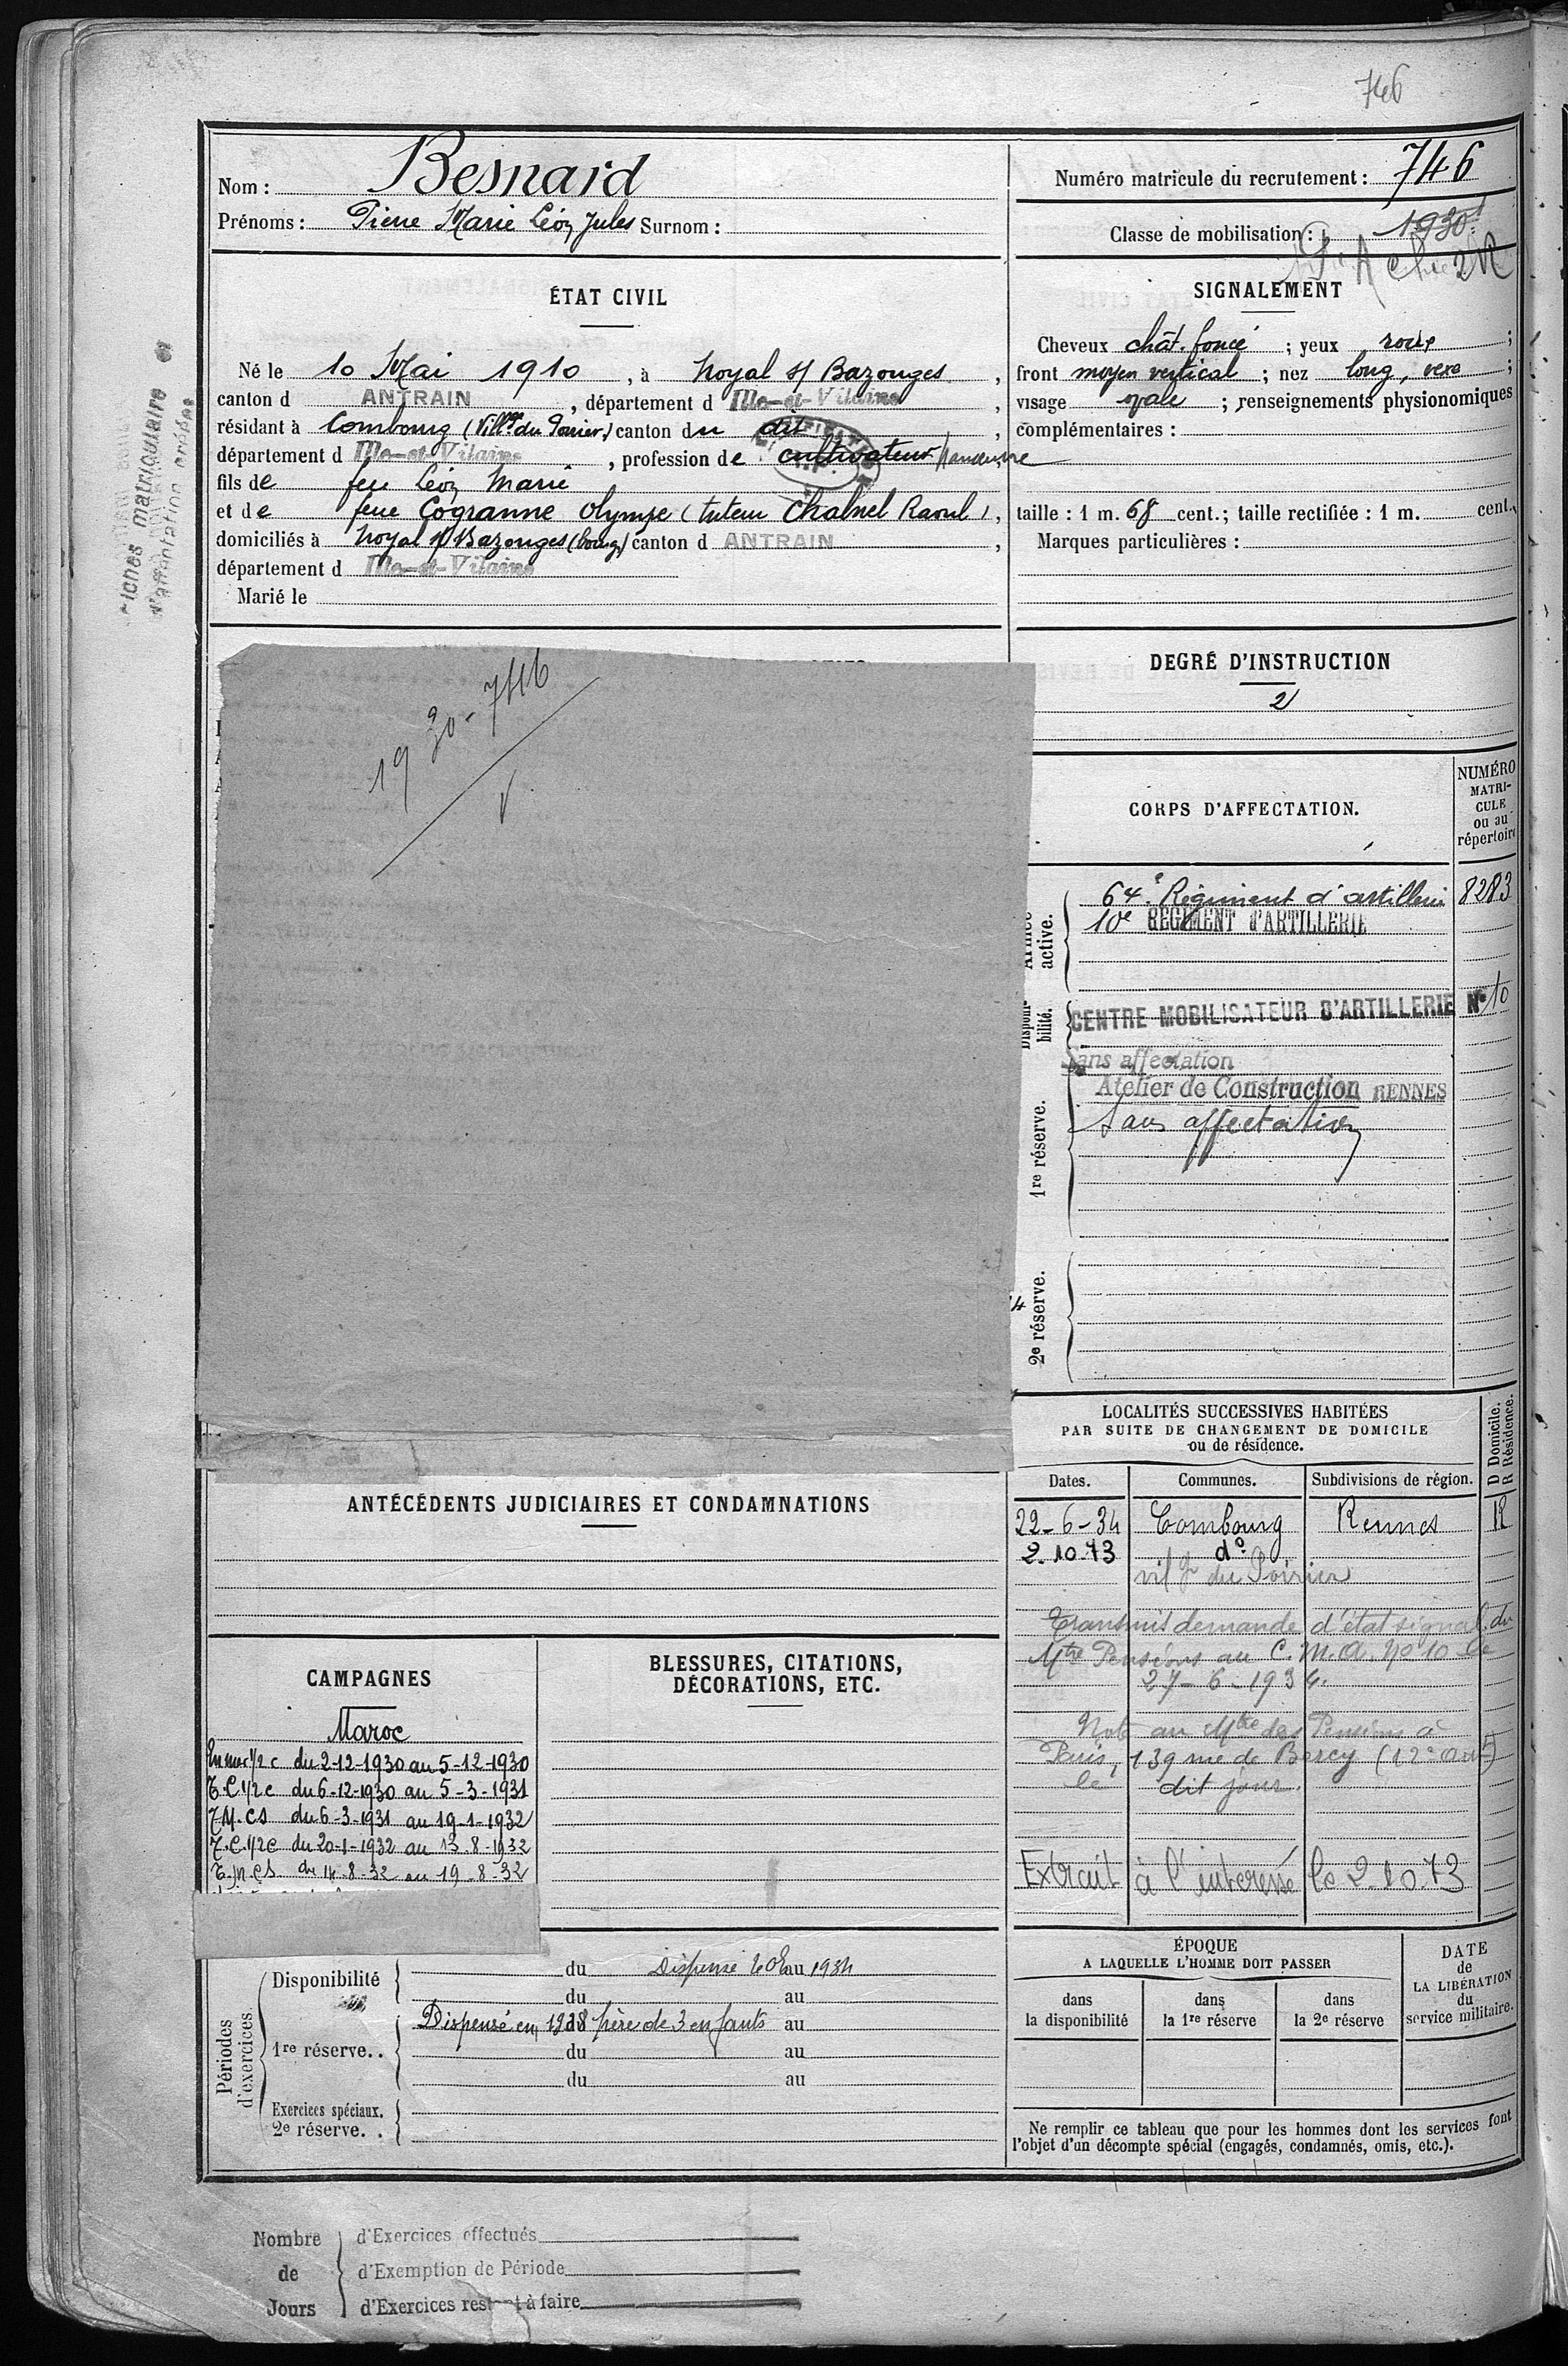 746
Nom : Besnard
Prénoms : Pierre Marie Léon Jules Surnom :
Numéro matricule du recrutement : 746
Classe de mobilisation : 1930
ÉTAT CIVIL
Né le 10 Mai 1910, à Noyal s/ Bazouges,
canton d ANTRAIN, département d Ille-et-Vilaine,
résidant à Combourg (Villge du Poirier) canton du dit,
département d Ille-et-Vilaine, profession de cultivateur
fils de feu Léon Marie
et de feue Cogranne Olympe (tuteur Chalmel Raoul),
domiciliés à Noyal s/ Bazouges (bourg) canton d ANTRAIN,
département d Ille-et-Vilaine
Marié le
SIGNALEMENT
Cheveux chât. foncé ; yeux ;
front moyen vertical ; nez long, ;
visage ovale ; renseignements physionomiques
complémentaires :
taille : 1 m. 68 cent.; taille rectifiée : 1 m. cent.
Marques particulières :
DEGRÉ D'INSTRUCTION
2
matriculaire
d'affectation
1930-746
CORPS D'AFFECTATION.
NUMÉRO
MATRI-
CULE
ou au
répertoire
active.
64e Régiment d'artillerie 8283
10e REGIMENT D'ARTILLERIE
Disponi-
bilité.
CENTRE MOBILISATEUR D'ARTILLERIE N° 10
Sans affectation
Atelier de Construction RENNES
Sans affectation
1re réserve.
2e réserve.
LOCALITÉS SUCCESSIVES HABITÉES
PAR SUITE DE CHANGEMENT DE DOMICILE
ou de résidence.
D Domicile.
R Résidence.
Dates. Communes. Subdivisions de région.
22-6-34 Combourg Rennes R
2.10.73 do
vilge du Poirier
Transmis demande d'état signal. du
Mtre Pensions au C.M.A. No 10 le
27-6-1934.
Note au Mtre des Pensions à
Paris, 139 rue de Bercy (12e Artt)
le dit jour.
Extrait à l'interessé le 2.10.73
ANTÉCÉDENTS JUDICIAIRES ET CONDAMNATIONS
CAMPAGNES
Maroc
En mer 1/2 c du 2-12-1930 au 5-12-1930
T.C 1/2 c du 6-12-1930 au 5-3-1931
T.M. CS du 6-3-1931 au 19-1-1932
T.C. 1/2 c du 20-1-1932 au 13-8-1932
T.M. CS du 14-8-32 au 19-8-32
BLESSURES, CITATIONS,
DÉCORATIONS, ETC.
Périodes
d'exercices
Disponibilité du Dispensé au 1934
du au
1re réserve.. Dispensé en 1938 père de 3 enfants au
du au
du au
Exercices spéciaux.
2e réserve. .
ÉPOQUE
A LAQUELLE L'HOMME DOIT PASSER
dans
la disponibilité
dans
la 1re réserve
dans
la 2e réserve
DATE
de
LA LIBÉRATION
du
service militaire.
Ne remplir ce tableau que pour les hommes dont les services font
l'objet d'un décompte spécial (engagés, condamnés, omis, etc.).
Nombre
de
Jours
d'Exercices effectués
d'Exemption de Période
d'Exercices restant à faire